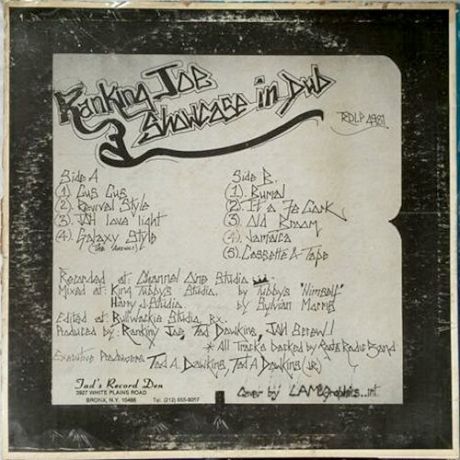 Ranking Joe
Showcase in Dub
RDLP 1981
Side A
(1) Gus Gus
(2) Revival Style
(3) JAH love light
(4) Galaxy Style
Side B.
(1) Burnal
(2) It a Fe Cork
(3) Old Broom
(4) Jamaica
(5) Cassette & Tape
Recorded at: Channel One Studio
Mixed at: King Tubbys Studio. by Tubbys "Himself"
Harry J. Studio. by Sylvian Morris
Edited at: Bullwackie Studio Bx.
Produced by: Ranking Joe, Tad Dawkins, JAH
* All Tracks backed by Roots Radic Band
Executive Producers: Tad A. Dawkins, Tad A Dawkins (JR.)
Tad's Record Den
3927 WHITE PLAINS ROAD
BRONX, N.Y. 10466 Tel. (212) 655-
Cover by LAMB Graphics..int.